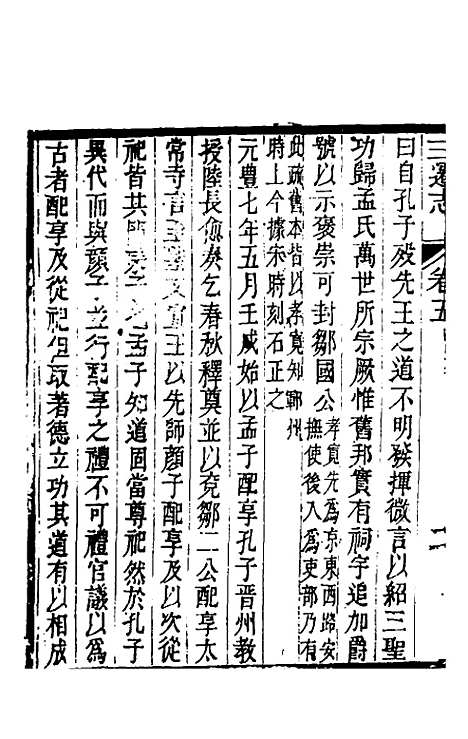 三遷志 卷五
曰自孔子歿先王之道不明發揮微言以紹三聖
功歸孟氏萬世所宗厥惟舊邦實有祠宇追加爵
號以示褒崇可封鄒國公孝寬先為京東西路安
撫使後入為吏部乃有
此疏舊本皆以孝寬知鄆州
時上今據宋時刻石正之
元豐七年五月壬戌始以孟子配享孔子晉州教
授陸長愈奏乞春秋釋奠並以兗鄒二公配享太
常寺言 王以先師顏子配享及以次從
祀皆其 孟子知道固當尊祀然於孔子
異代而與顏子並行配享之禮不可禮官議以為
古者配享及從祀但取著德立功其道有以相成